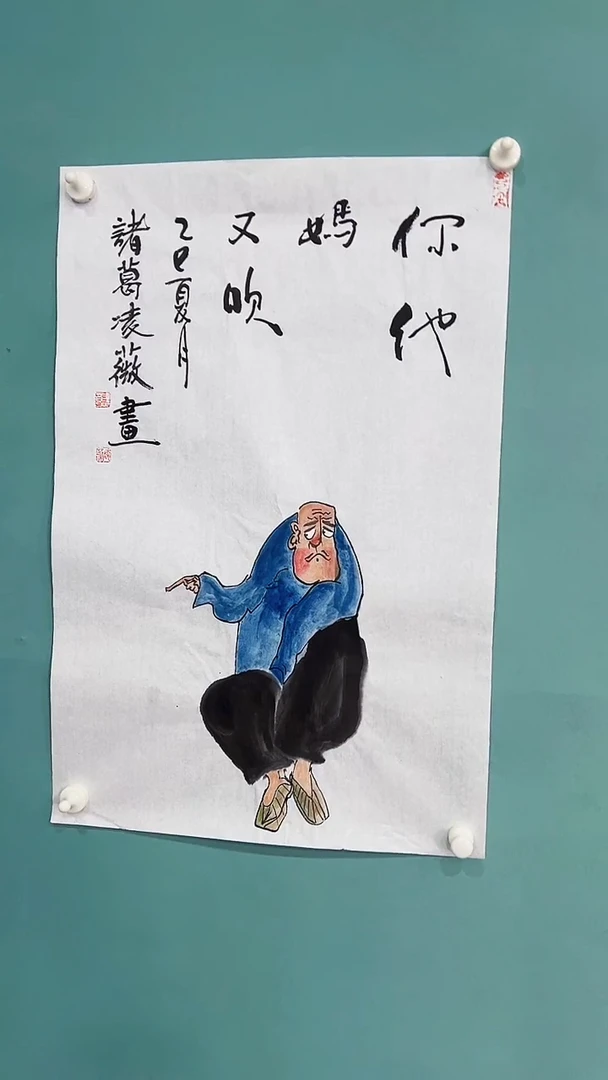 你他
媽
又吹
乙巳夏月
諸葛凌薇畫